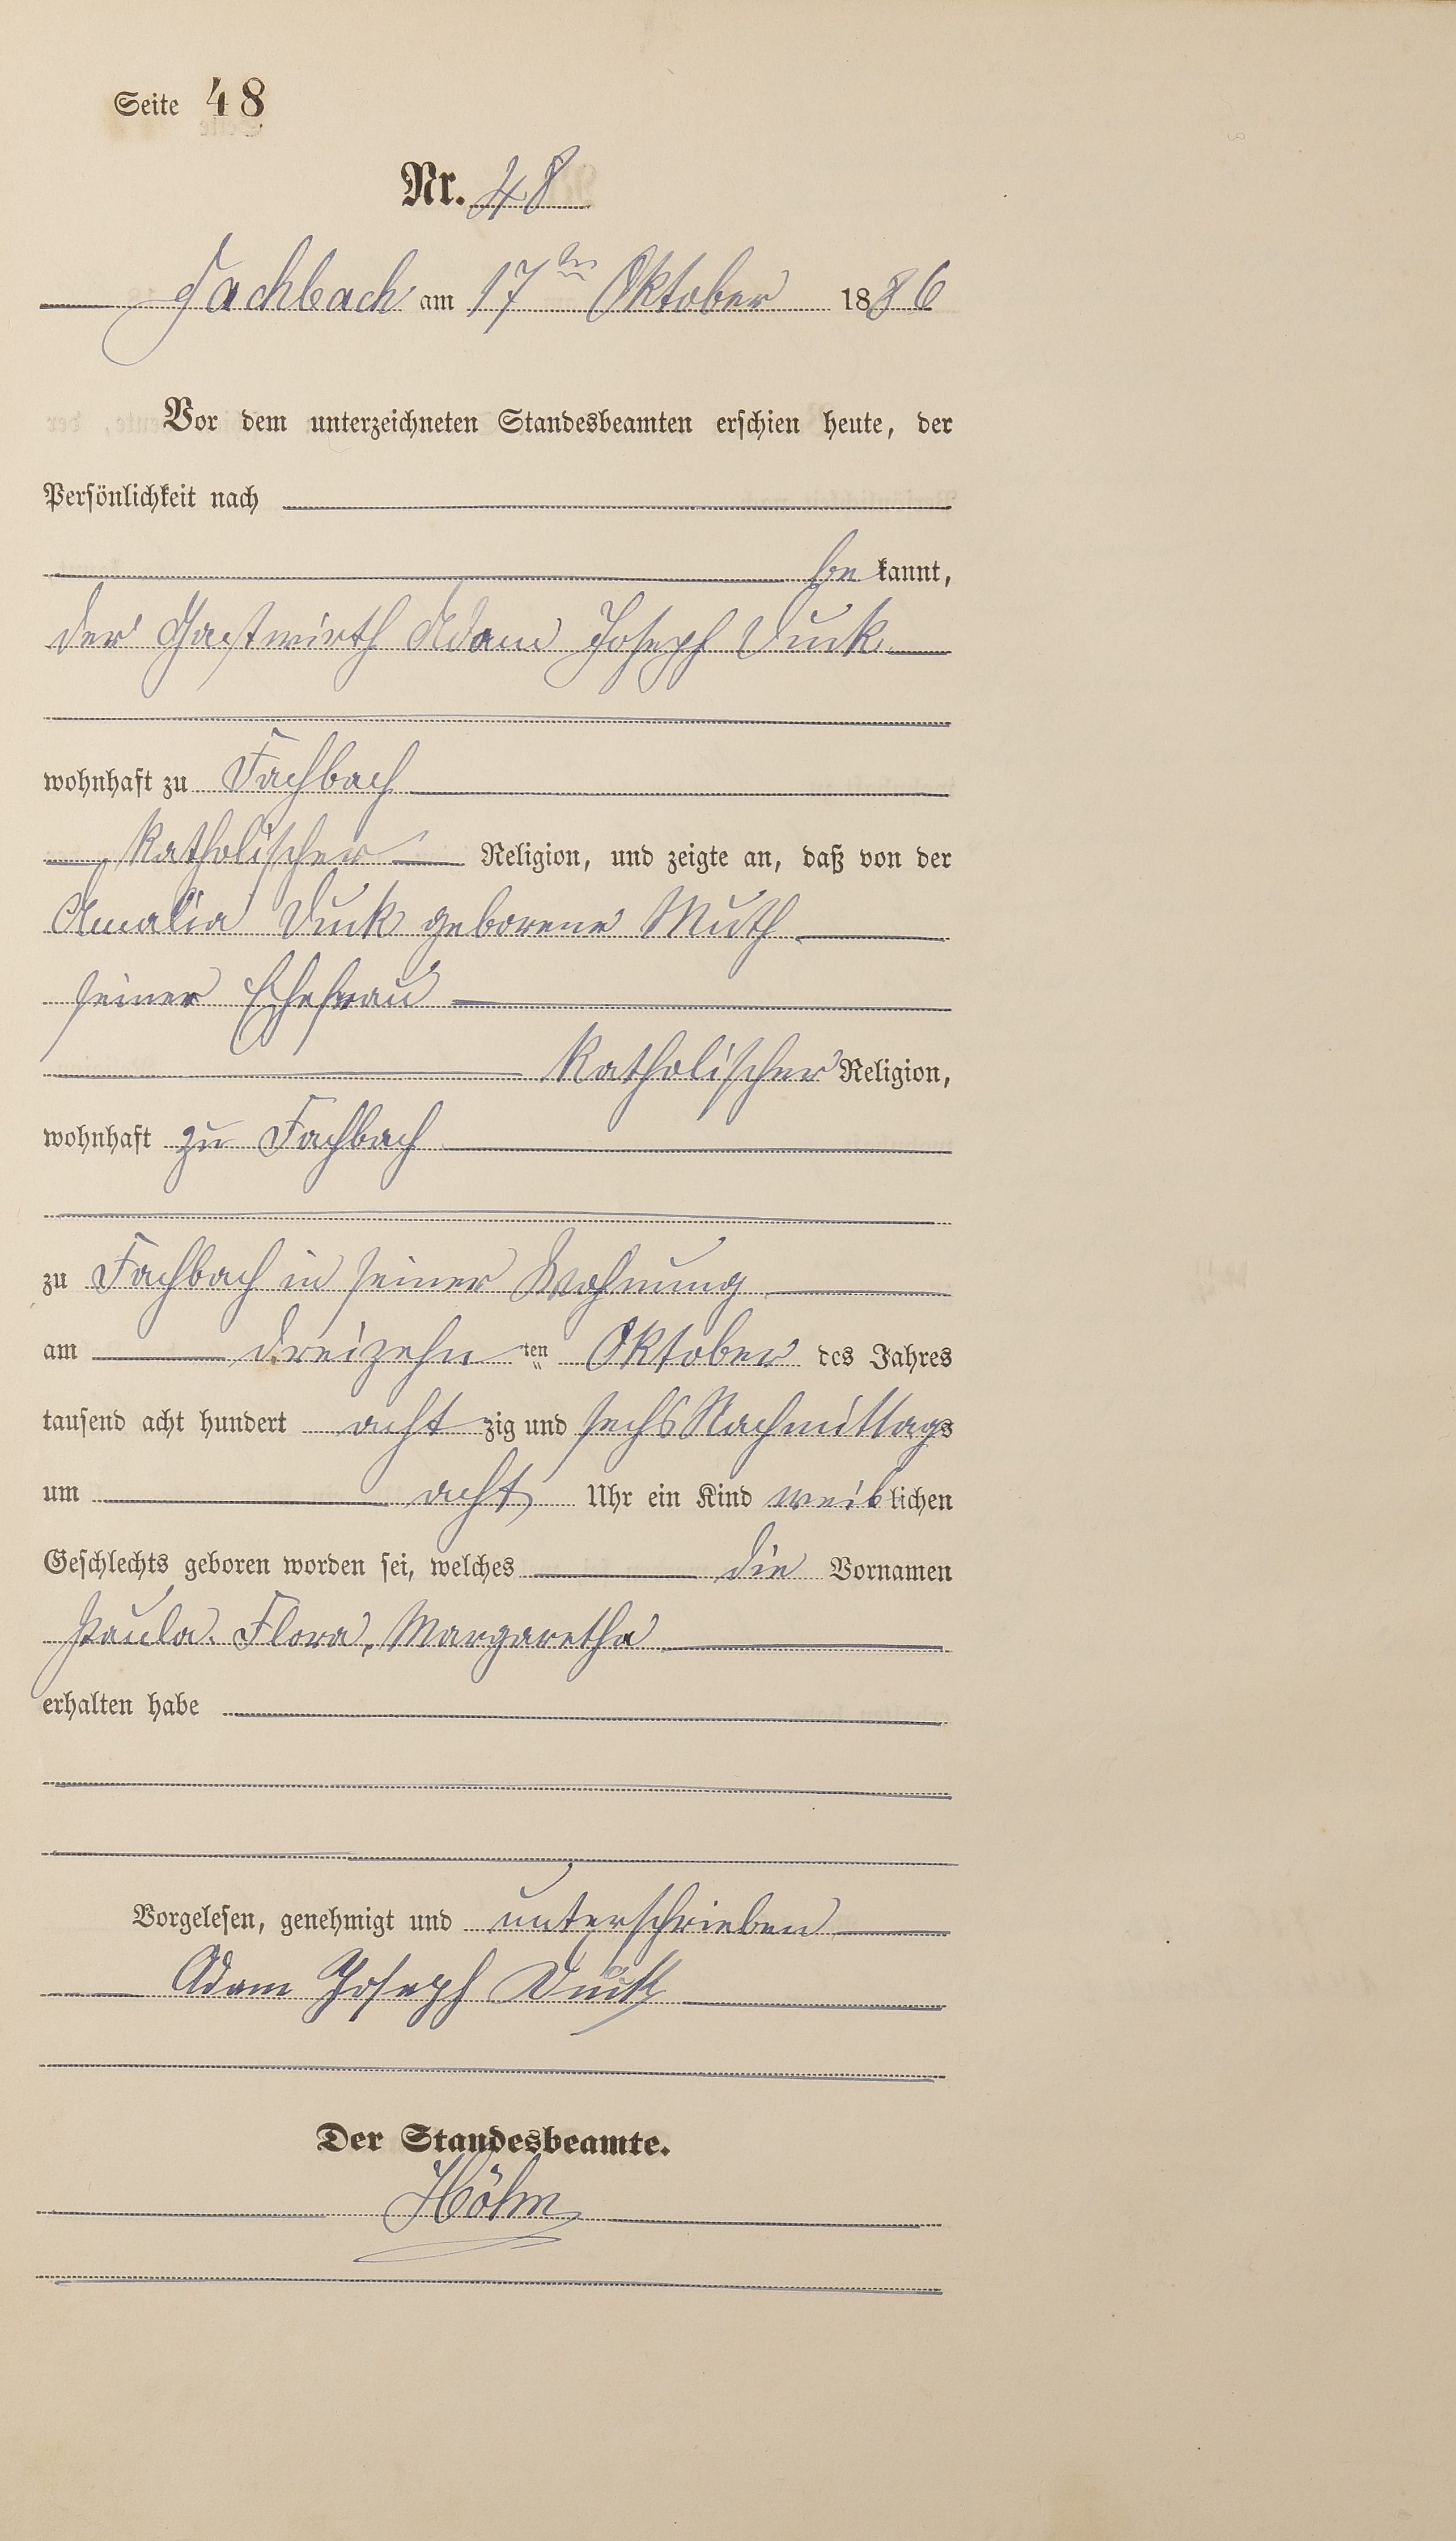 Seite 48
Nr. 48
Fachbach am 17ten Oktober 1886
Vor dem unterzeichneten Standesbeamten erschien heute, der
Persönlichkeit nach
be kannt,
der Gastwirth Adam Joseph Duck
wohnhaft zu Fachbach
katholischer Religion, und zeigte an, daß von der
Amalia Duck geborene Muth
seiner Ehefrau
katholischer Religion,
wohnhaft zu Fachbach
zu Fachbach in seiner Wohnung
am dreizehn ten Oktober des Jahres
tausend acht hundert acht zig und sechs Nachmittags
um acht Uhr ein Kind weiblichen
Geschlechts geboren worden sei, welches die Vornamen
Paula. Flora, Margaretha
erhalten habe
Vorgelesen, genehmigt und unterschrieben
Adam Joseph Duck
Der Standesbeamte.
Höhn